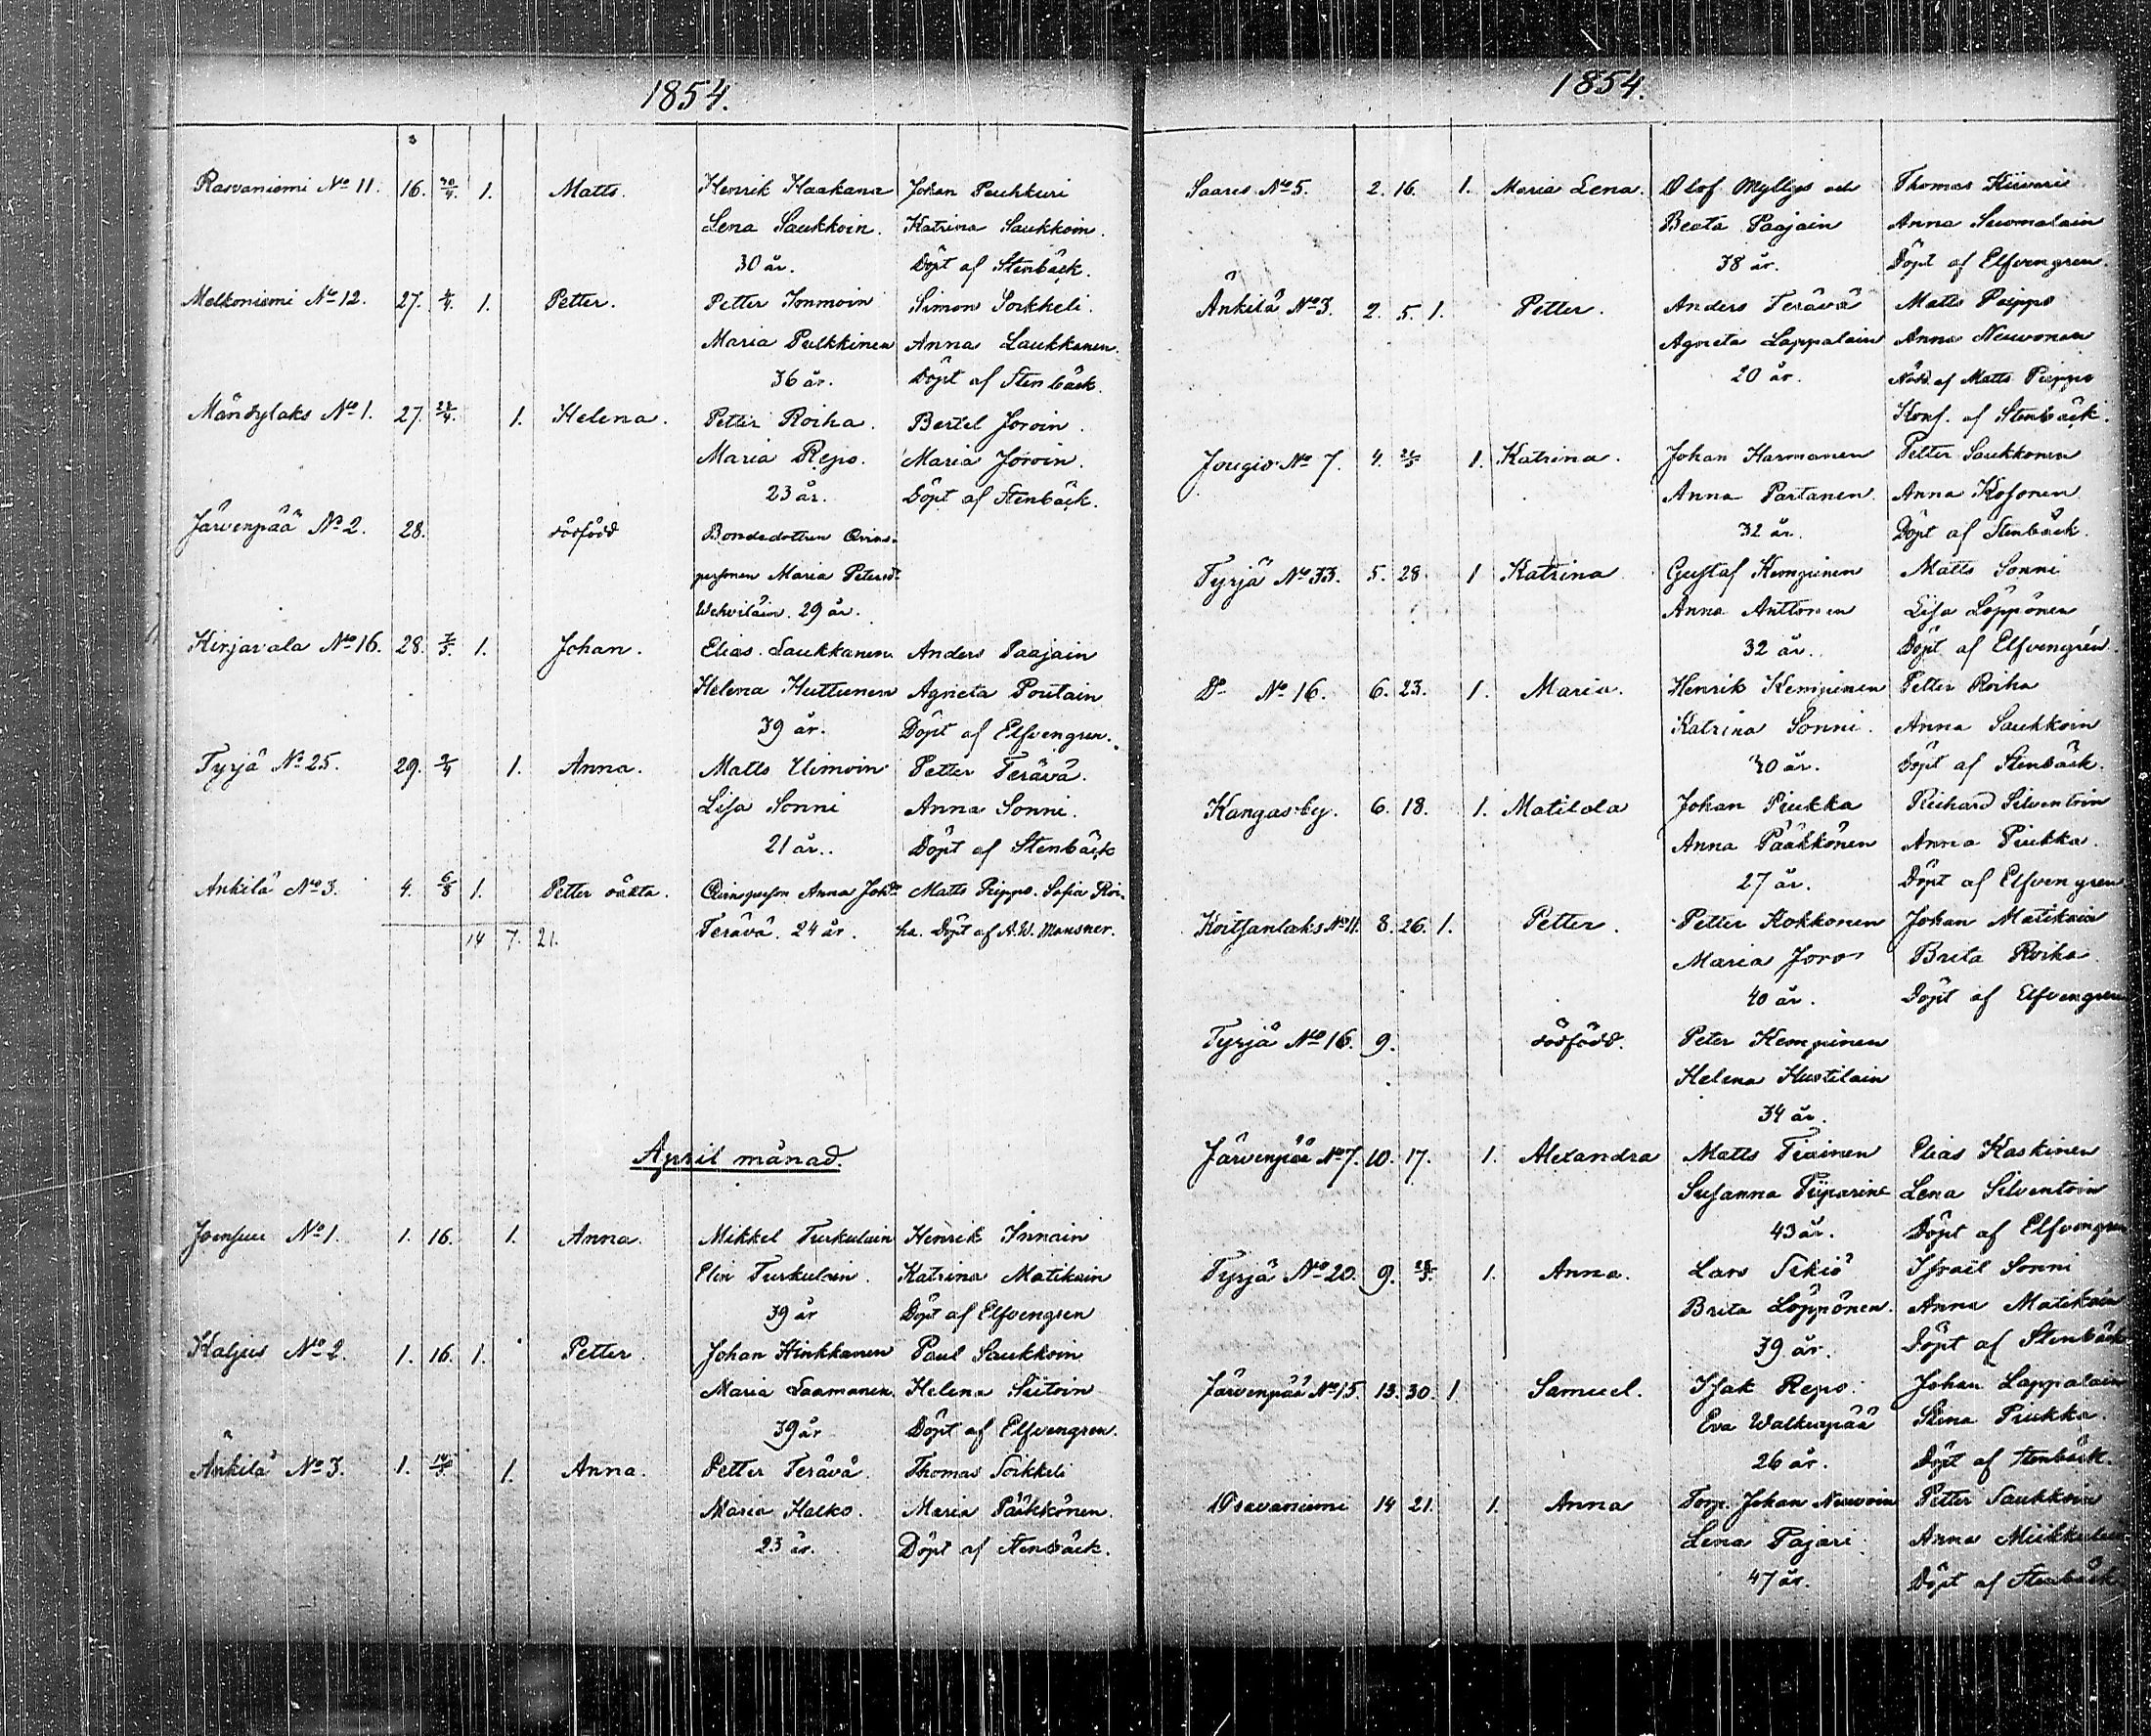 1854.
Rasvaniemi No 11. 16. 30/4. 1. Matts. Henrik Haakana Johan Puhkuri
Lena Saukkoin. Katrina Saukkoin.
30 år. Döpt af Stenbäck.
Melkoniemi No 12. 27. 4. 1. Petter. Petter Ionmoin Simon Soikkeli.
Maria Pulkkinen Anna Laukkanen.
36 år. Döpt af Stenbäck.
Mändylaks No 1. 27. 23/4. 1. Helena. Petter Roiha. Bertel Joroin.
Maria Repo. Maria Joroin.
23 år. Döpt af Stenbäck.
Järvenpää No 2. 28. dödfödd Bondedottren Qvins-
personen Maria Petersd.
Wehviläin. 29 år.
Kirjavala No 16. 28. 7/5. 1. Johan. Elias Laukkanen Anders Paajain
Helena Huttunen Agneta Poutain
39 år. Döpt af Elfvengren.
Tyrjä No 25. 29. 2/4 1. Anna. Matts Uimoin Petter Terävä.
Lisa Sonni Anna Sonni.
21 år. Döpt af Stenbäck
Ankilä No 3. 4. 6/8 1. Petter oäkta. Qvinsperson Anna Johd. Matts Peippo. Sofia Roi-
14 7. 21. Terävä. 24 år. ha. Döpt af A.W. Mansner.
April månad.
Joensuu No 1. 1. 16. 1. Anna. Mikkel Turkulain Henrik Innain
Elin Turkulain. Katrina Matikain
39 år Döpt af Elfvengren
Kaljus No 2. 1. 16. 1. Petter. Johan Hinkkanen Paul Saukkoin
Maria Saamanen. Helena Siitoin
39 år Döpt af Elfvengren.
Änkilä No 3. 1. 14/5. 1. Anna. Petter Terävä. Thomas Soikkeli
Maria Halko. Maria Pääkkönen.
23 år. Döpt af Stenbäck.
1854.
Saares No 5. 2. 16. 1. Maria Lena. Olof Myllys och Thomas Kiiveri
Beata Paajain Anna Suomalain
38 år. Döpt af Elfvengren.
Änkilä No 3. 2. 5. 1. Petter. Anders Terävä Matts Peippo
Agneta Lappalain Anna Neuvonen
20 år. Nöd. af Matts Peippo
Konf. af Stenbäck.
Jougio No 7. 4. 1. Katrina. Johan Harmanen Petter Saukkonen
Anna Partanen Anna Kosonen
32 år. Döpt af Stenbäck.
Tyrjä No 33. 5. 28. 1 Katrina Gustaf Kempinen Matts Sonni
Anna Anttonen Lisa Löppönen
32 år. Döpt af Elfvengren.
Do No 16. 6. 23. 1. Maria. Henrik Kempinen Petter Roiha
Katrina Sonni. Anna Saukkoin
30 år. Döpt af Stenbäck.
Kangasby. 6. 18. 1. Matilda Johan Piukka Richard Silventoin
Anna Pääkkönen Anna Piukka.
27 år. Döpt af Elfvengren
Koitsanlaks No 11. 8. 26. 1. Petter. Petter Kokkonen Johan Matikain
Maria Joro Brita Roiha.
40 år. Döpt af Elfvengren
Tyrjä No 16. 9. dödfödd. Peter Kempinen
Helena Hustilain
34 år.
Järvenpää No 7. 10. 17. 1. Alexandra Matts Tiainen Elias Kaskinen
Susanna Tiiparine Lena Silventoin
43 år. Döpt af Elfvengren
Tyrjä No 20. 9. 1. Anna. Lars Sekiö Israel Sonni
Brita Löppönen. Anna Matikain
39 år. Döpt af Stenbäck
Järvenpää No 15. 13. 30. 1. Samuel. Isak Repo. Johan Lappalain
Eva Walkiapää Stina Piukka.
26 år. Döpt af Stenbäck.
Oravaniemi 14 21. 1. Anna Torp. Johan Neuvoin Petter Saukkoin
Lena Pajari. Anna Miikkulain
47 år. Döpt af Stenbäck.